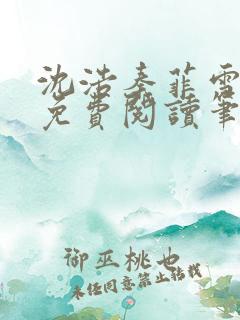 沈浩秦菲雪
免費閱讀筆
御巫桃也
未经同意禁止转载